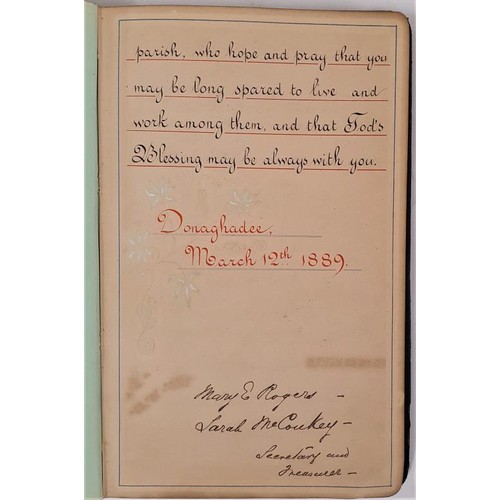 parish, who hope and pray that you
may be long spared to live and
work among them, and that God's
Blessing may be always with you.
Donaghadee,
March 12th 1889.
Mary E Rogers -
Sarah McConkey -
Secretary and
Treasurer -